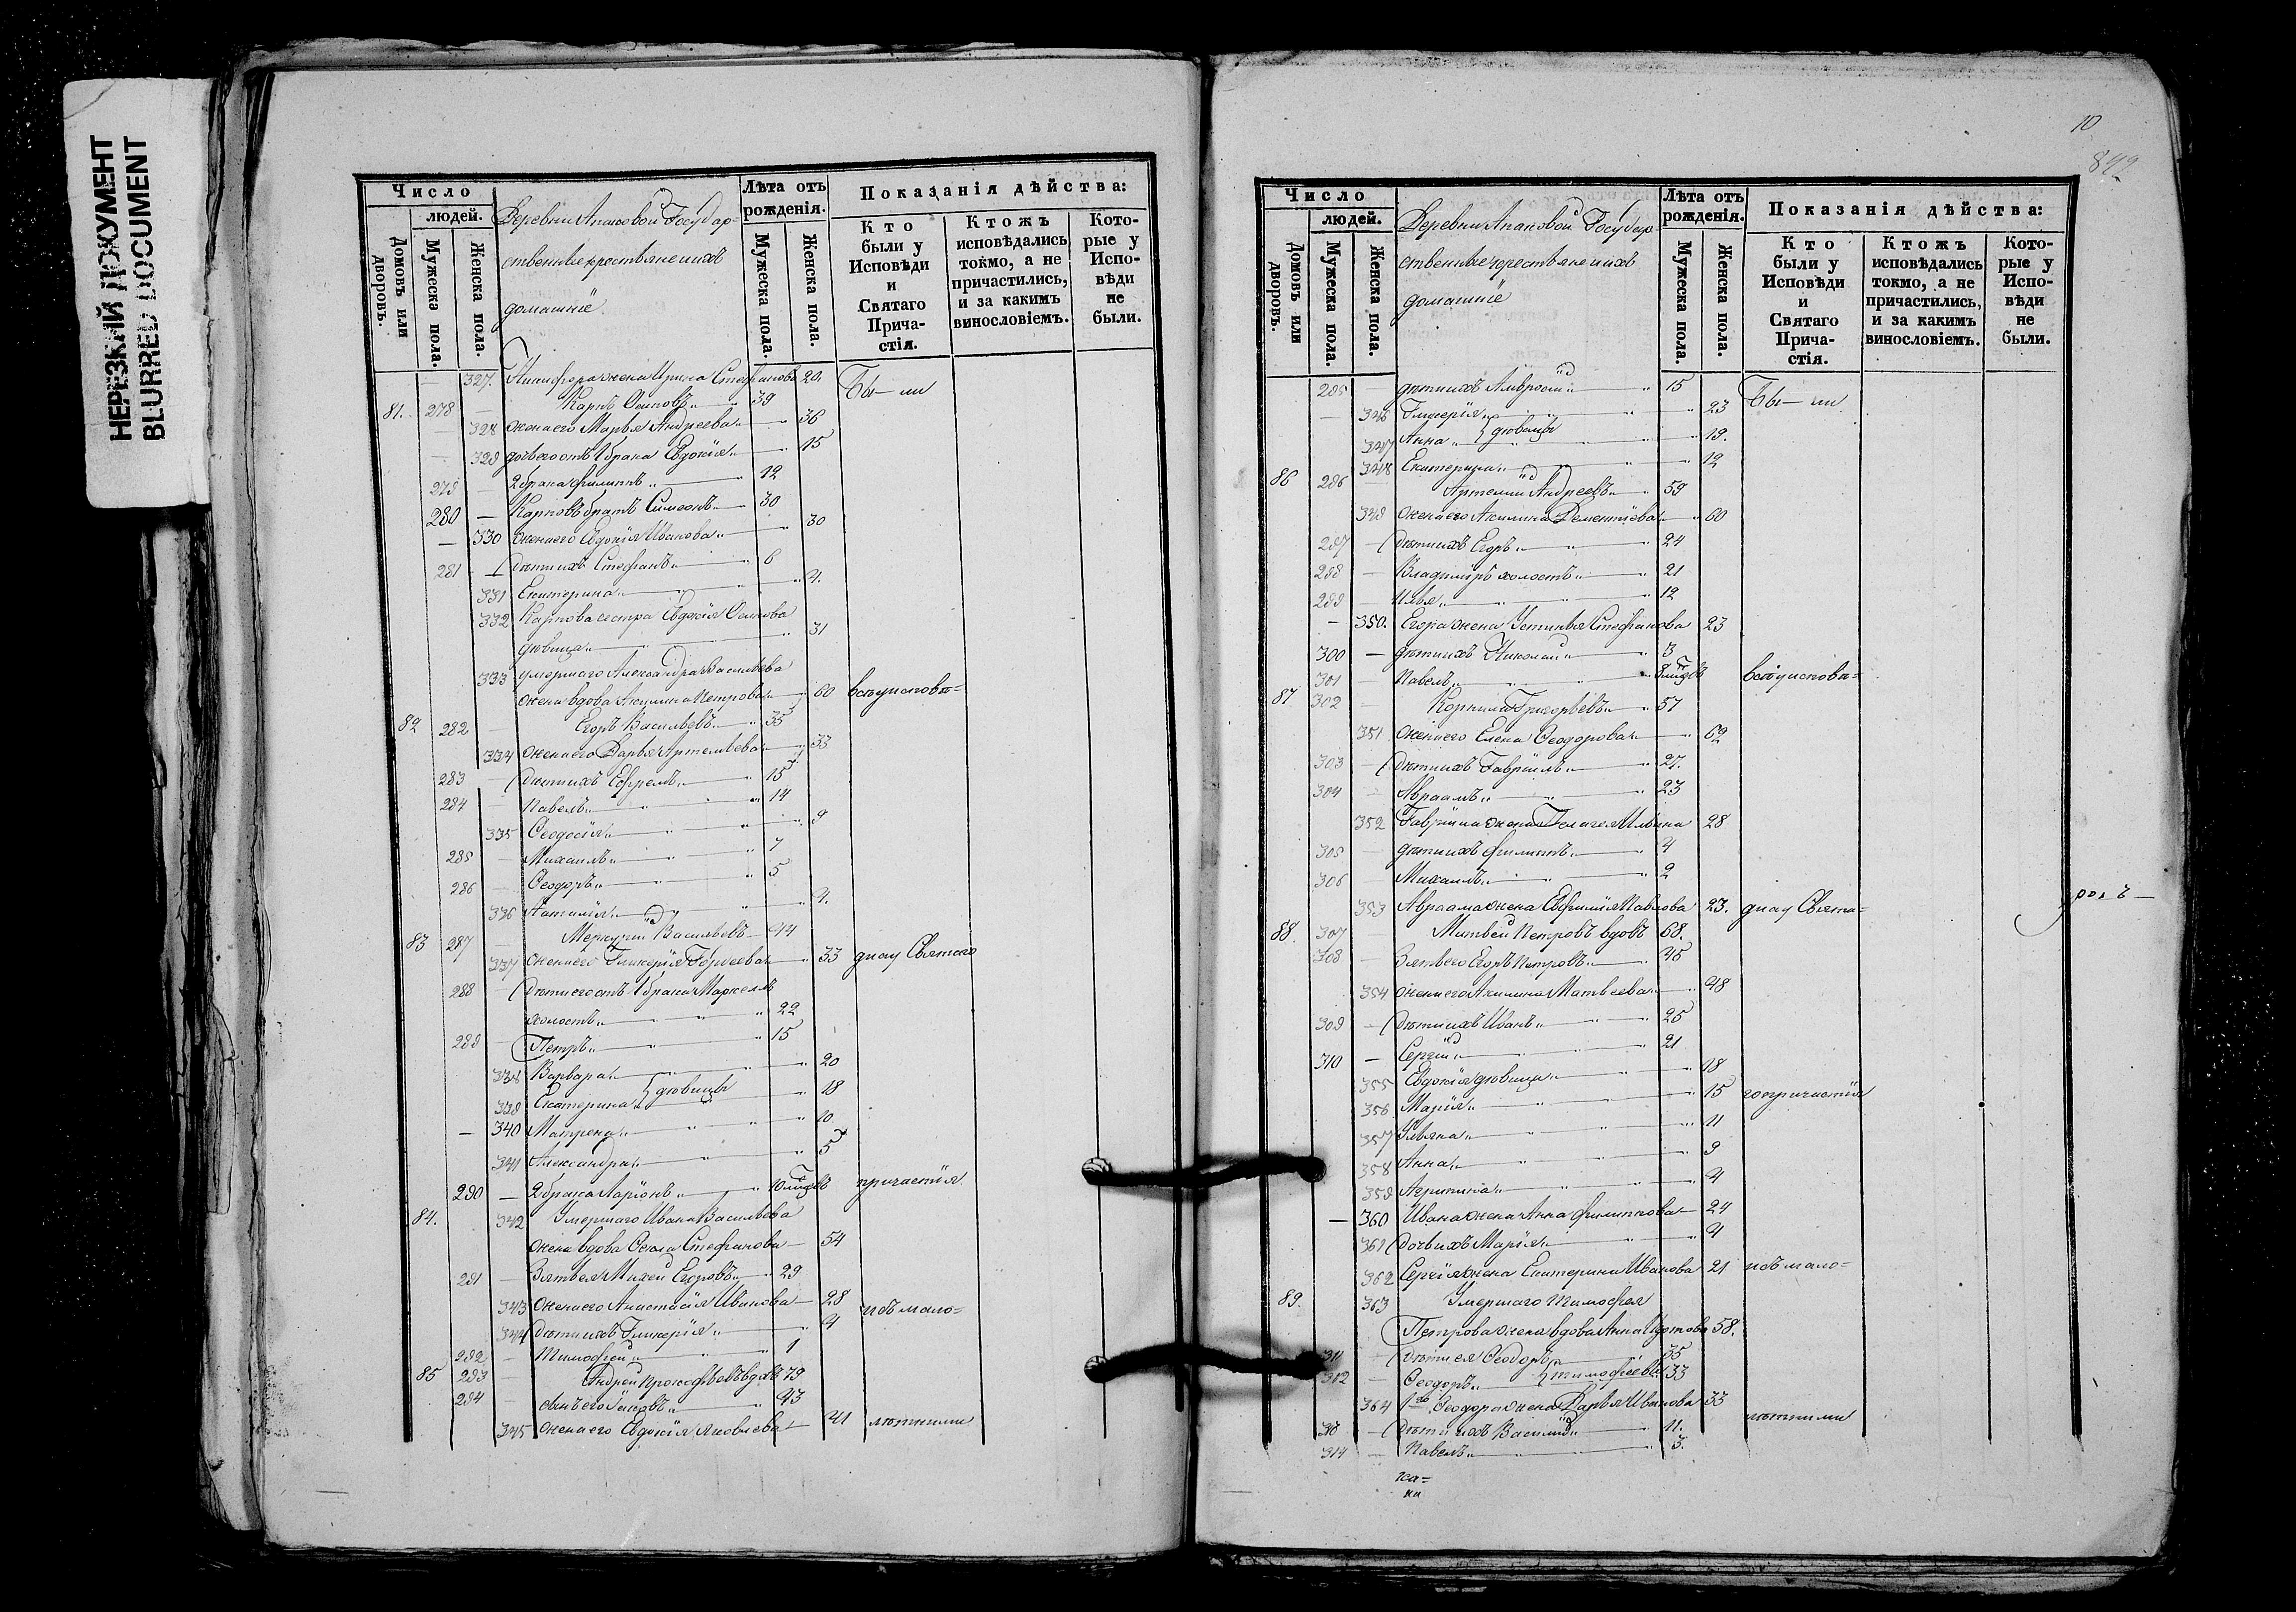 НЕРЕЗКИЙ ДОКУМЕНТ
BLURRED DOCUMENT
Число
людей.
Домовъ или дворовъ.
Мужеска пола.
Женска пола.
Деревни Апаковой Государ=
ственные крестьяне и ихъ
домашніе
Лѣта отъ рожденія.
Мужеска пола.
Женска пола.
Показанія дѣйства:
Кто были у Исповѣди и Святаго Прича-стія.
Ктожъ исповѣдались токмо, а не причастились, и за какимъ винословіемъ.
Кото-рые у Испо-вѣди не были.
327. жена Ирина Стефанова 20. Бы— ли
81. 278 Карпъ Осиповъ 39
328 жена его Марья Андреева 36
329 дочь его отъ 1 брака Евдокія 15
279 2 брака Филиппъ 12
280 Карповъ братъ Симеонъ 30
330 жена его Евдокія Иванова 30
281 Дѣти ихъ Стефанъ 6
331 Екатерина 4.
332 Карпова сестра Евдокія Осипова
дѣвица 31
333 умершаго Александра Васильева
жена вдова Акулина Петрова 60
82 282 Егоръ Васильевъ 35
334 жена его Дарья Артемьева 33
283 Дѣти ихъ Ефремъ 15
284 Павелъ 14
335 Ѳеодосія 9
285 Михаилъ 7
286 Ѳеодоръ 5
336 Наталія 4.
83 287 Меркурій Васильевъ 44
337 жена его Гликерія 33 Святаго
288 Дѣти его отъ 1 брака Маркеллъ
холостъ 22
289 Петръ 15
338 Варвара 20
339 Екатерина } дѣвицы 18
340 Матрена 10
341 Александра 5
290 2 брака Ларіонъ 10 причастія
84. 342 Умершаго Ивана Васильева
жена вдова Стефанова 54
291 Зять ея Михей Егоровъ 29
343 жена его Анастасія Иванова 28 мало=
344 Дѣти ихъ Гликерія 4
292 Тимофей 1
85 293 Андрей Прокофьевъ вдовъ 79
294 сынъ его Іаковъ 43
345 жена его Евдокія Яковлева 41 лѣтними
10
Число
людей.
Домовъ или дворовъ.
Мужеска пола.
Женска пола.
Деревни Апаковой Государ=
ственные крестьяне и ихъ
домашніе
Лѣта отъ рожденія.
Мужеска пола.
Женска пола.
Показанія дѣйства:
Кто были у Исповѣди и Святаго Прича-стія.
Ктожъ исповѣдались токмо, а не причастились, и за какимъ винословіемъ.
Кото-рые у Испо-вѣди не были.
295 дѣти ихъ Амвросій 15 Бы— ли
346 Гликерія 23
347 Анна } дѣвицы 19.
348 Екатерина 12
86 296 Артемій Андреевъ 59
349 жена его Акилина Дементіева 60
297 Дѣти ихъ Егоръ 24
298 Владиміръ холостъ 21
299 Илья 12
350. Егора жена Устинья Стефанова 23
300 дѣти ихъ Николай 3
301 Павелъ 8
87 302 Корнилій Григорьевъ 57
351 жена его Елена Ѳеодорова 62
303 Дѣти ихъ Гавріилъ 27.
304 Авраамъ 23
352 Гавріила жена Пелагея Ильина 28
305 дѣти ихъ Филиппъ 4
306 Михаилъ 2
353 Авраама жена Евфимія Павлова 23. Свята=
88. 307 Матвей Петровъ вдовъ 68.
308 Зять его Егоръ Петровъ 45
354 жена его Акилина Матвеева 48
309 Дѣти ихъ Иванъ 25
310 Сергій 21
355 Евдокія дѣвица 18
356 Марія 15 го причастія
357 Ульяна 11
358 Анна 9
359 Агрипина 4
360 Ивана жена Анна Филиппова 24
361 Дочь ихъ Марія 4
362 Сергія жена Екатерина Иванова 21 мало=
89. 363 Умершаго Тимофея
Петрова жена вдова Анна 58.
311 Дѣти ея Ѳеодоръ 35
312 Ѳеодоръ } Тимофеевы 33
364 1го Ѳеодора жена Дарья Иванова 33
Дѣти ихъ Василій 11. лѣтними
314 Павелъ 3.